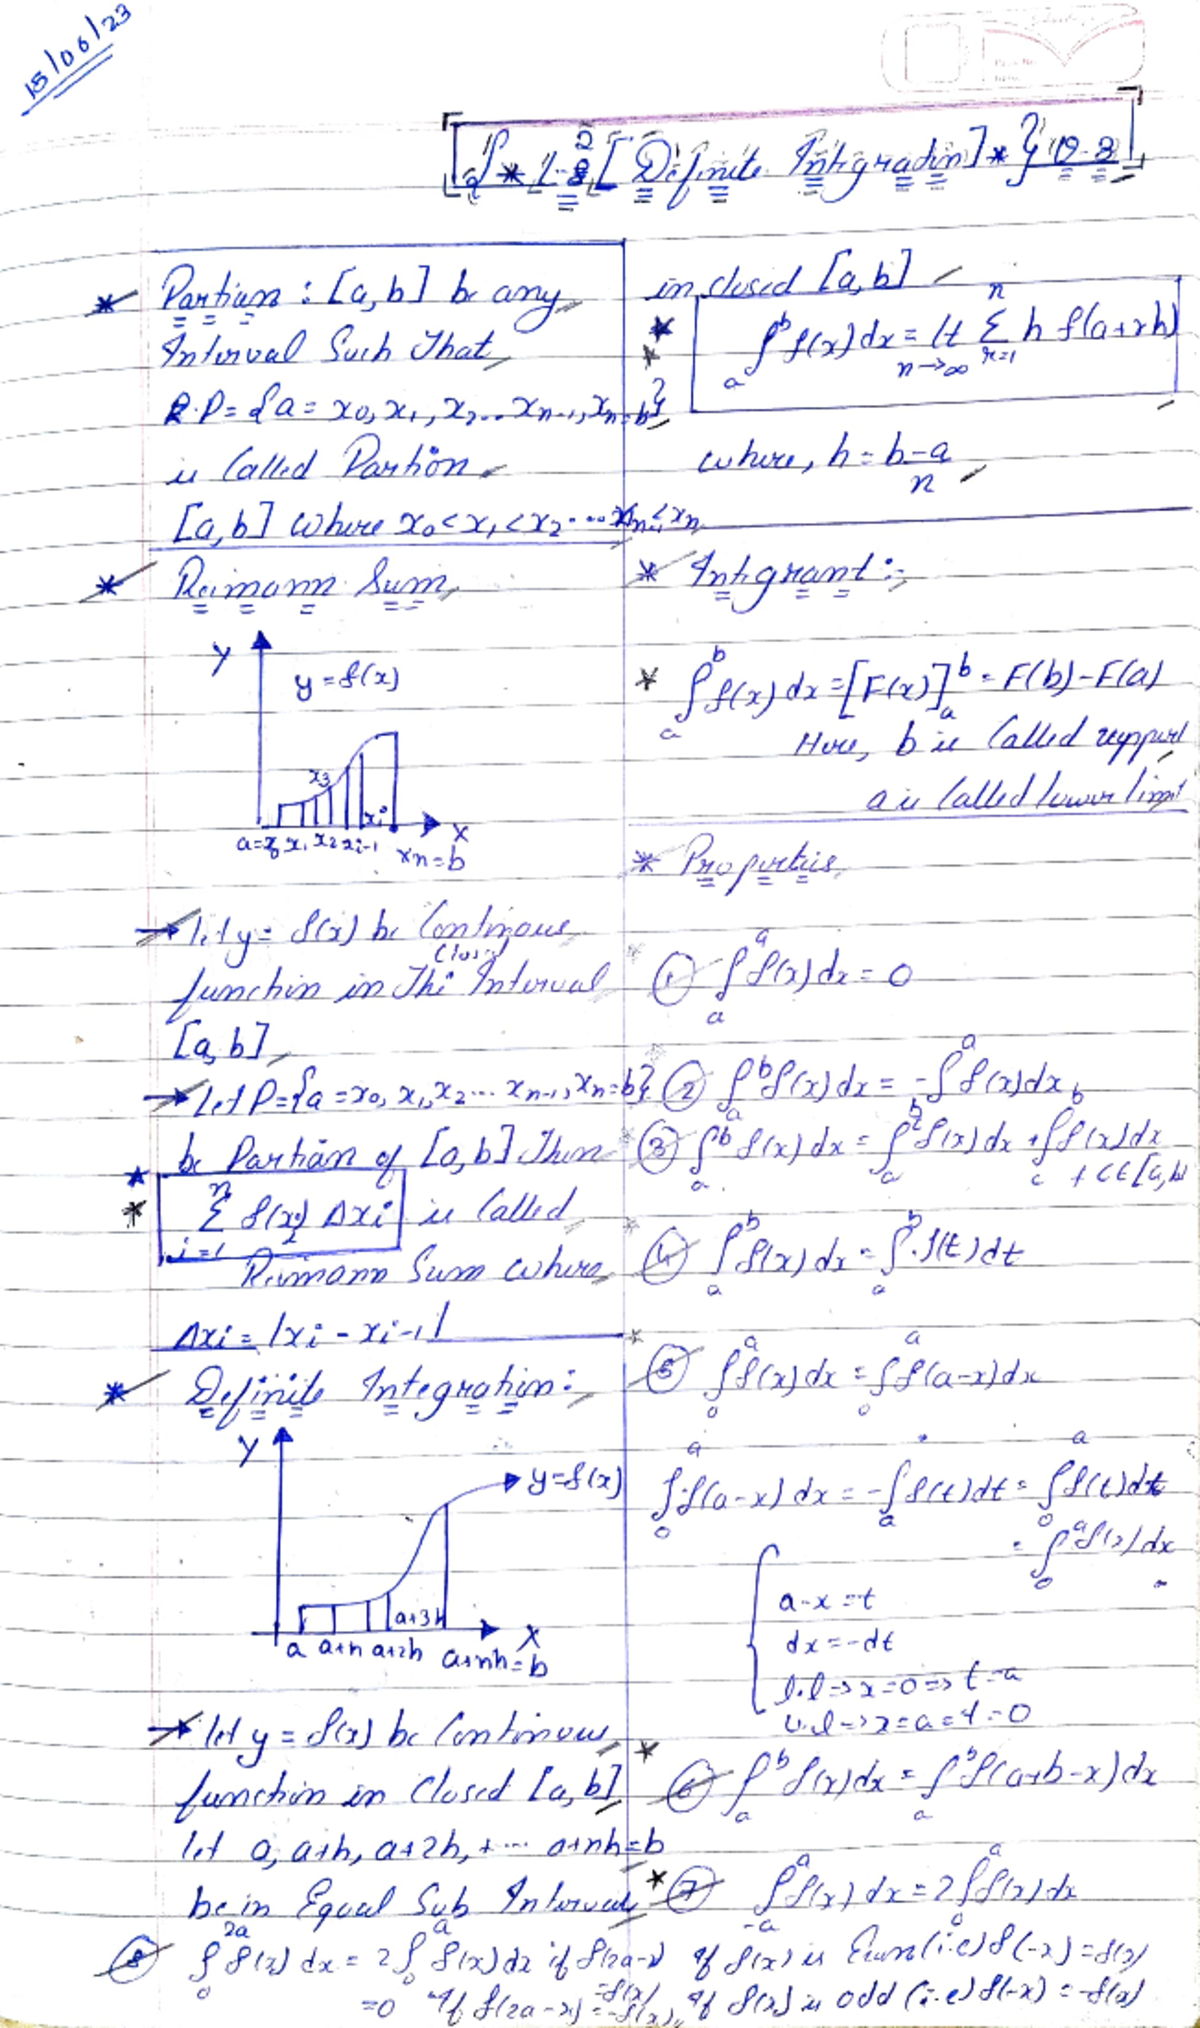 15/06/23
{* L-2 [Definite Intigration] *} 10-8
* Partian : [a,b] be any
Interval Such That
P = {a = x0, x1, x2... xn-1, xn=b}
is Called Partion
[a,b] where x0 < x1 < x2 ... xn-1 < xn
* Reimann Sum
Y
y = f(x)
x3
xi
a=x0 x1 x2 xi-1
X
xn = b
→ let y = f(x) be Continous
Closed
function in The Interval
[a,b]
→ let P={a = x0, x1, x2... xn-1, xn=b}
be Partian of [a,b] Then
* n
* Σ f(xi) Δxi is Called
i=1
Reimann Sum where
Δxi = |xi - xi-1|
* Definite Integration:
Y
y=f(x)
a+3h
a a+h a+2h a+nh=b
X
→ let y = f(x) be Continous
function in Closed [a,b]
let a, a+h, a+2h, + ... a+nh=b
be in Equal Sub Intervals
in closed [a,b]
* ∫_a^b f(x) dx = lt_{n→∞} Σ_{r=1}^n h f(a+rh)
where, h = b-a/n
* Intigrant :-
* ∫_a^b f(x) dx = [F(x)]_a^b = F(b)-F(a)
Here, b is Called
a is Called lower limit
* Propertis
① ∫_a^a f(x) dx = 0
② ∫_a^b f(x) dx = -∫_b^a f(x) dx
③ ∫_a^b f(x) dx = ∫_a f(x) dx + ∫_c^b f(x) dx
+ c ∈ [a,b]
④ ∫_a^b f(x) dx = ∫_a^b f(t) dt
⑤ ∫_0^a f(x) dx = ∫_0^a f(a-x) dx
∫_0^a f(a-x) dx = -∫_a f(t) dt = ∫_0^a f(t) dt
= ∫_0^a f(x) dx
{ a-x = t
dx = -dt
l.l => x=0 => t=a
u.l => x=a = t=0
* ⑥ ∫_a^b f(x) dx = ∫_a^b f(a+b-x) dx
* ⑦ ∫_-a^a f(x) dx = 2∫_0^a f(x) dx
if f(x) is Even (i.e) f(-x) = f(x)
if f(x) is odd (i.e) f(-x) = -f(x)
⑧ ∫_0^2a f(x) dx = 2∫_0^a f(x) dx if f(2a-x) = f(x)
=0 if f(2a-x) = -f(x)